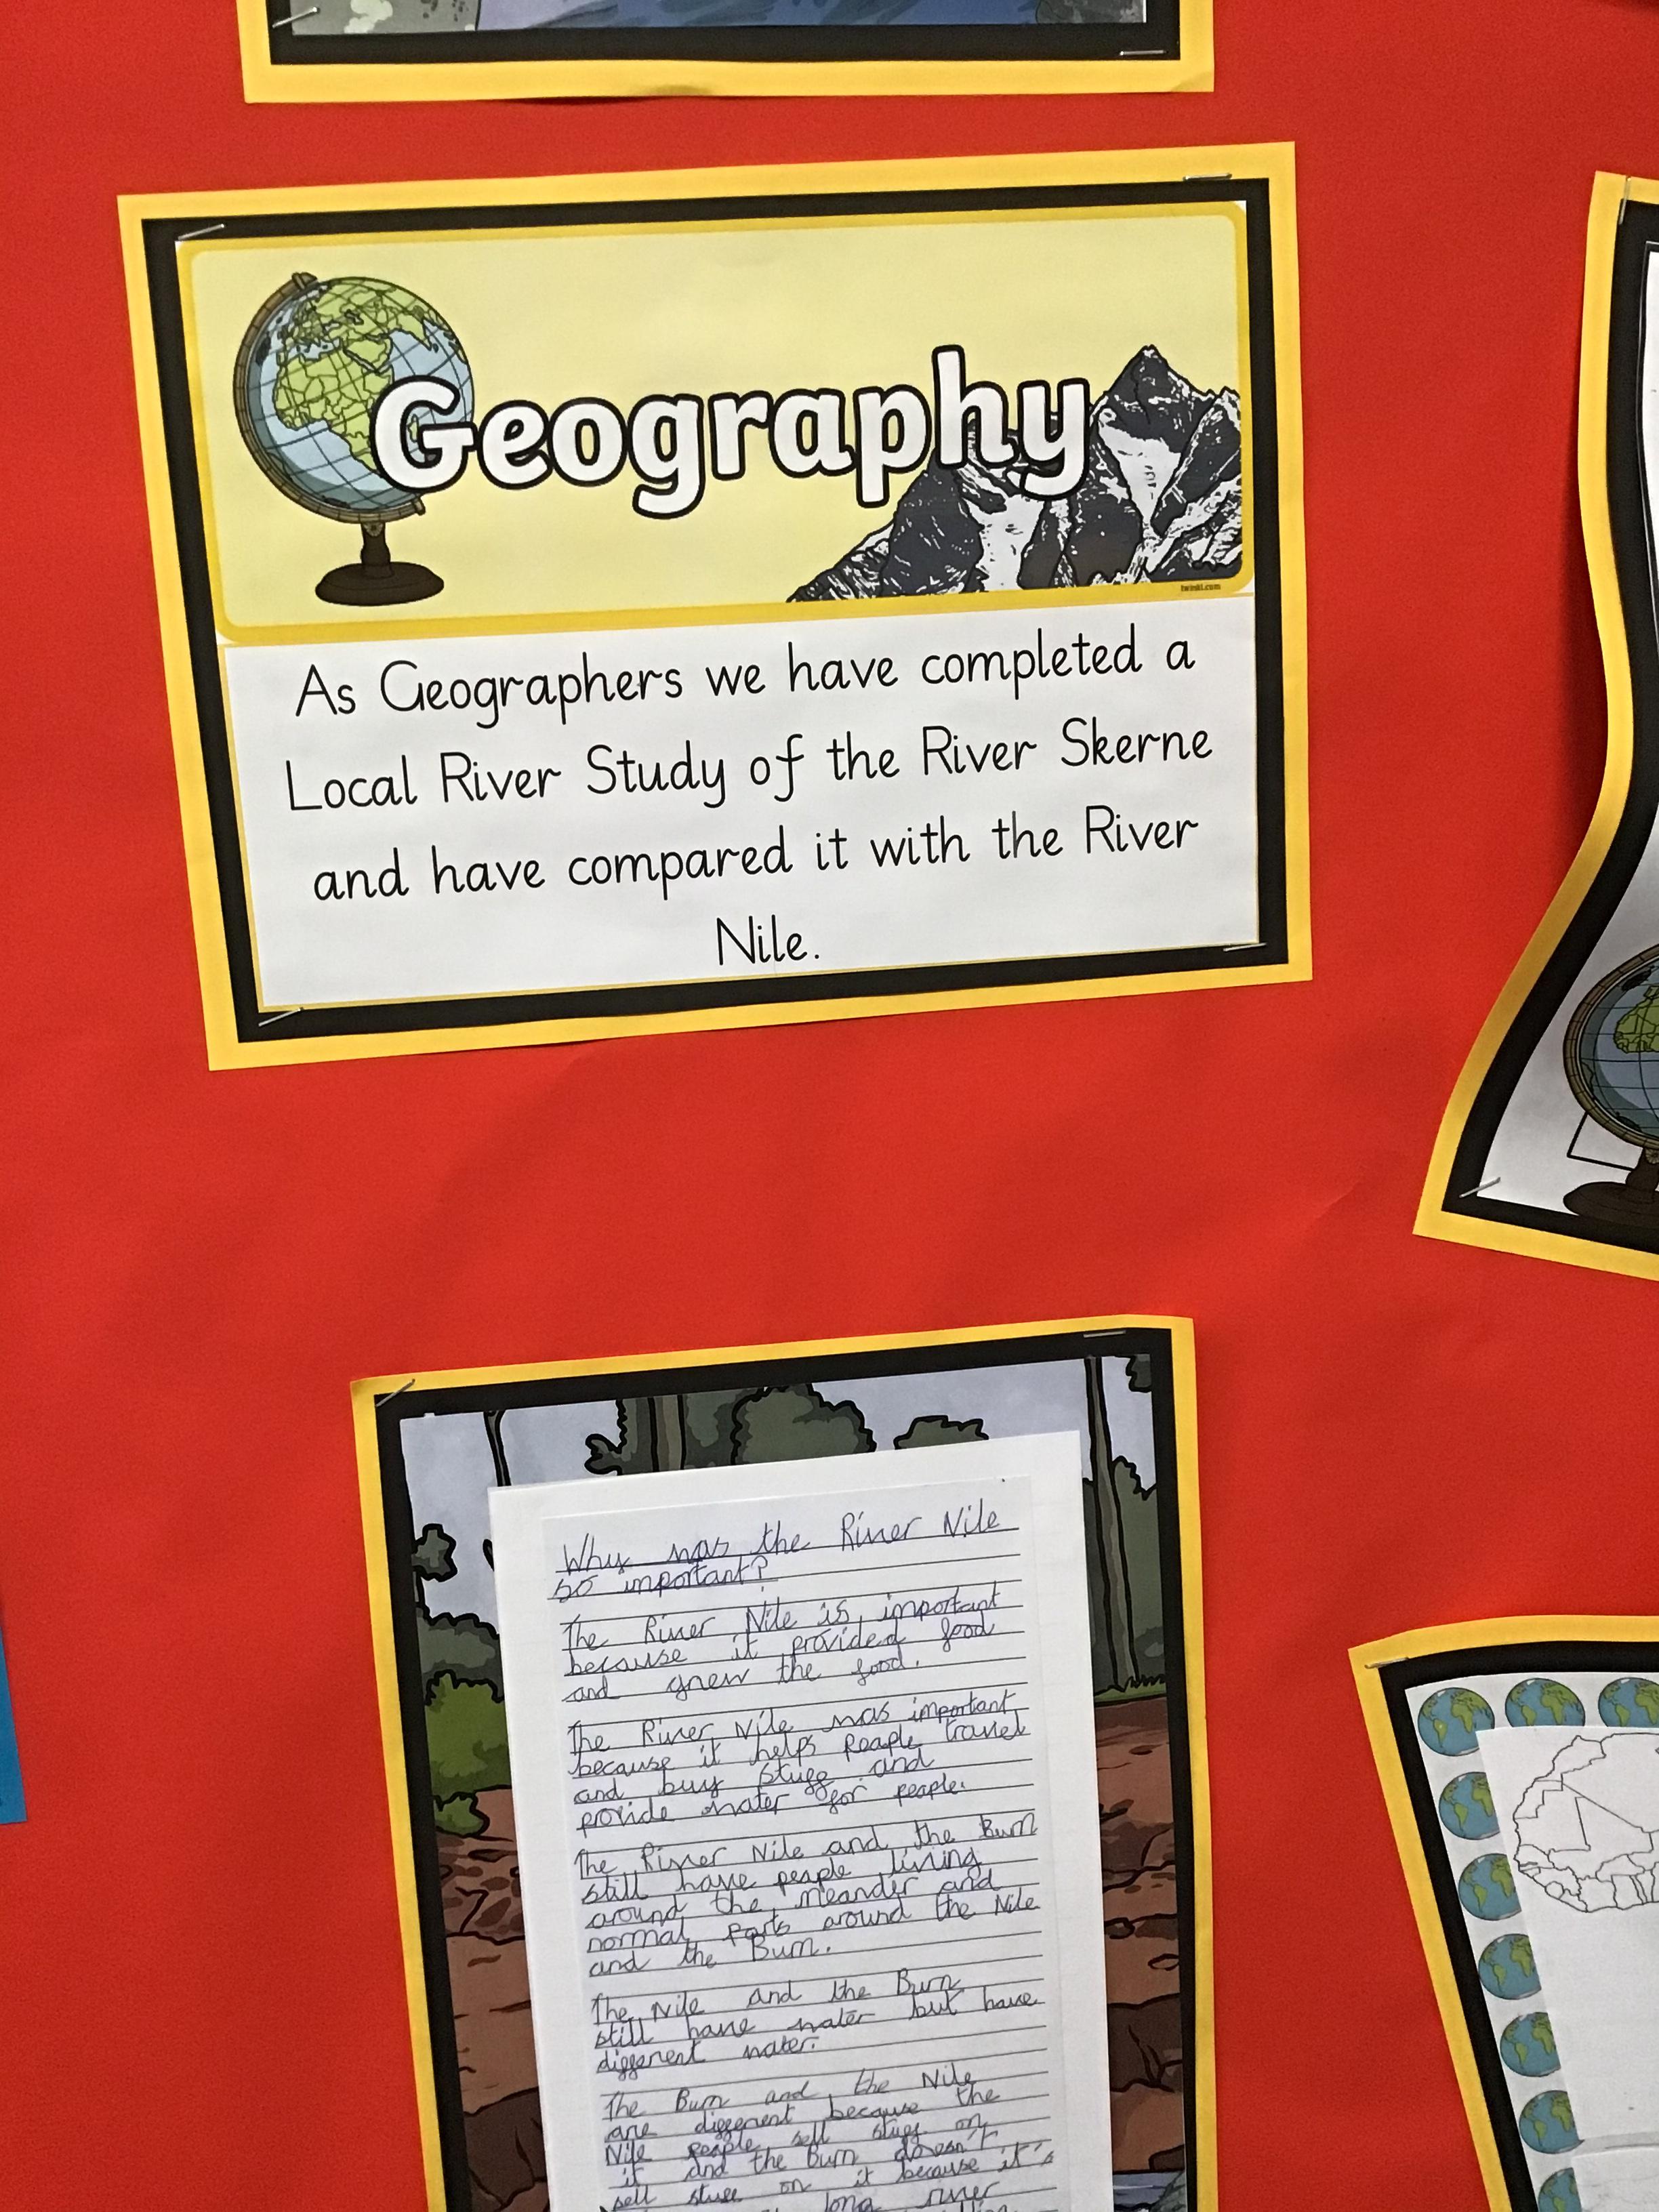 Geography
twinkl.com
As Geographers we have completed a
Local River Study of the River Skerne
and have compared it with the River
Nile.
Why was the River Nile
so important?
The River Nile is important
because it provided food
and grew the food.
The River Nile was important
because it helps people travel
and buy stuff and
provide water for people.
The River Nile and the Burn
still have people living
around the meander and
normal parts around the Nile
and the Burn.
The Nile and the Burn
still have water but have
different water.
The Burn and the Nile
are different because the
Nile people sell stuff on
it and the Burn doesn't
sell stuff on it because it's
long river